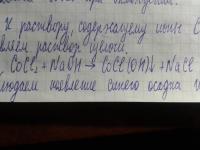 К раствору, содержащему ионы С
раствор щелочи.
CoCl₂ + NaOH → CoCl(OH)↓ + NaCl
людаем появление синего осадка